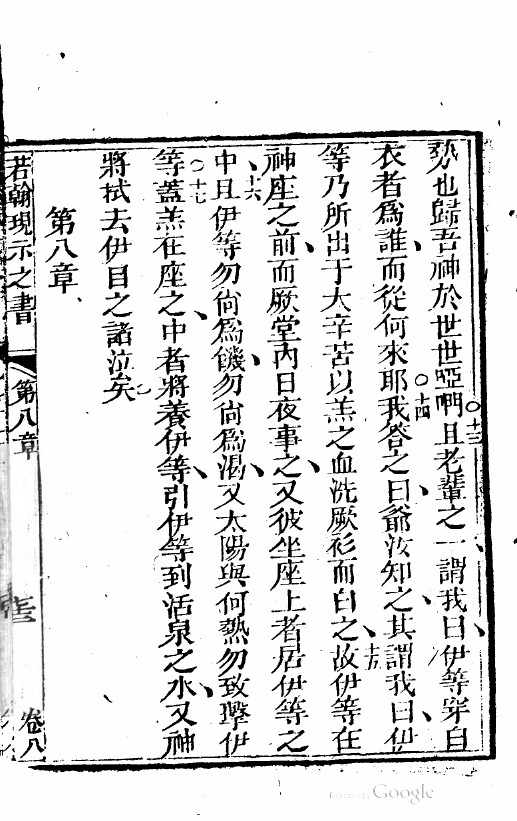 勢也歸吾神於世世啞啊○十三且老輩之一謂我曰伊等穿白
衣者為誰而從何來耶○十四我答之曰爺汝知之其謂我曰伊
等乃所出于大辛苦以羔之血洗厥衫而白之○十五故伊等在
神座之前而厥堂內日夜事之又彼坐座上者居伊等之
○十六中且伊等勿尚為饑勿尚為渴又太陽與何熱勿致擊伊
等○十七蓋羔在座之中者將養伊等引伊等到活泉之水又神
將拭去伊目之諸泣矣
第八章
若翰現示之書
第八章
卷八
Digitized by Google